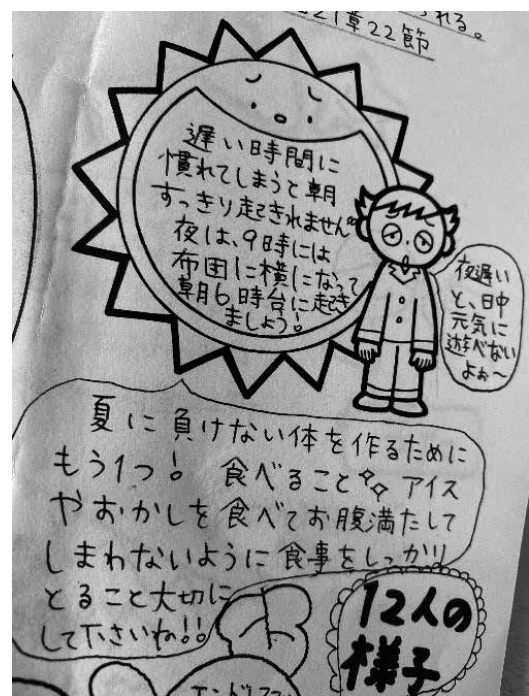 れる。
21章22節
遅い時間に
慣れてしまうと朝
すっきり起きれません。
夜は、9時には
布団に横になって
朝6時台に起き
ましょう!
夜遅い
と、日中
元気に
遊べない
よぉ〜
夏に負けない体を作るために
もう1つ! 食べること アイス
やおかしを食べてお腹満たして
しまわないように食事をしっかり
とること大切に
して下さいね!!
12人の
様子